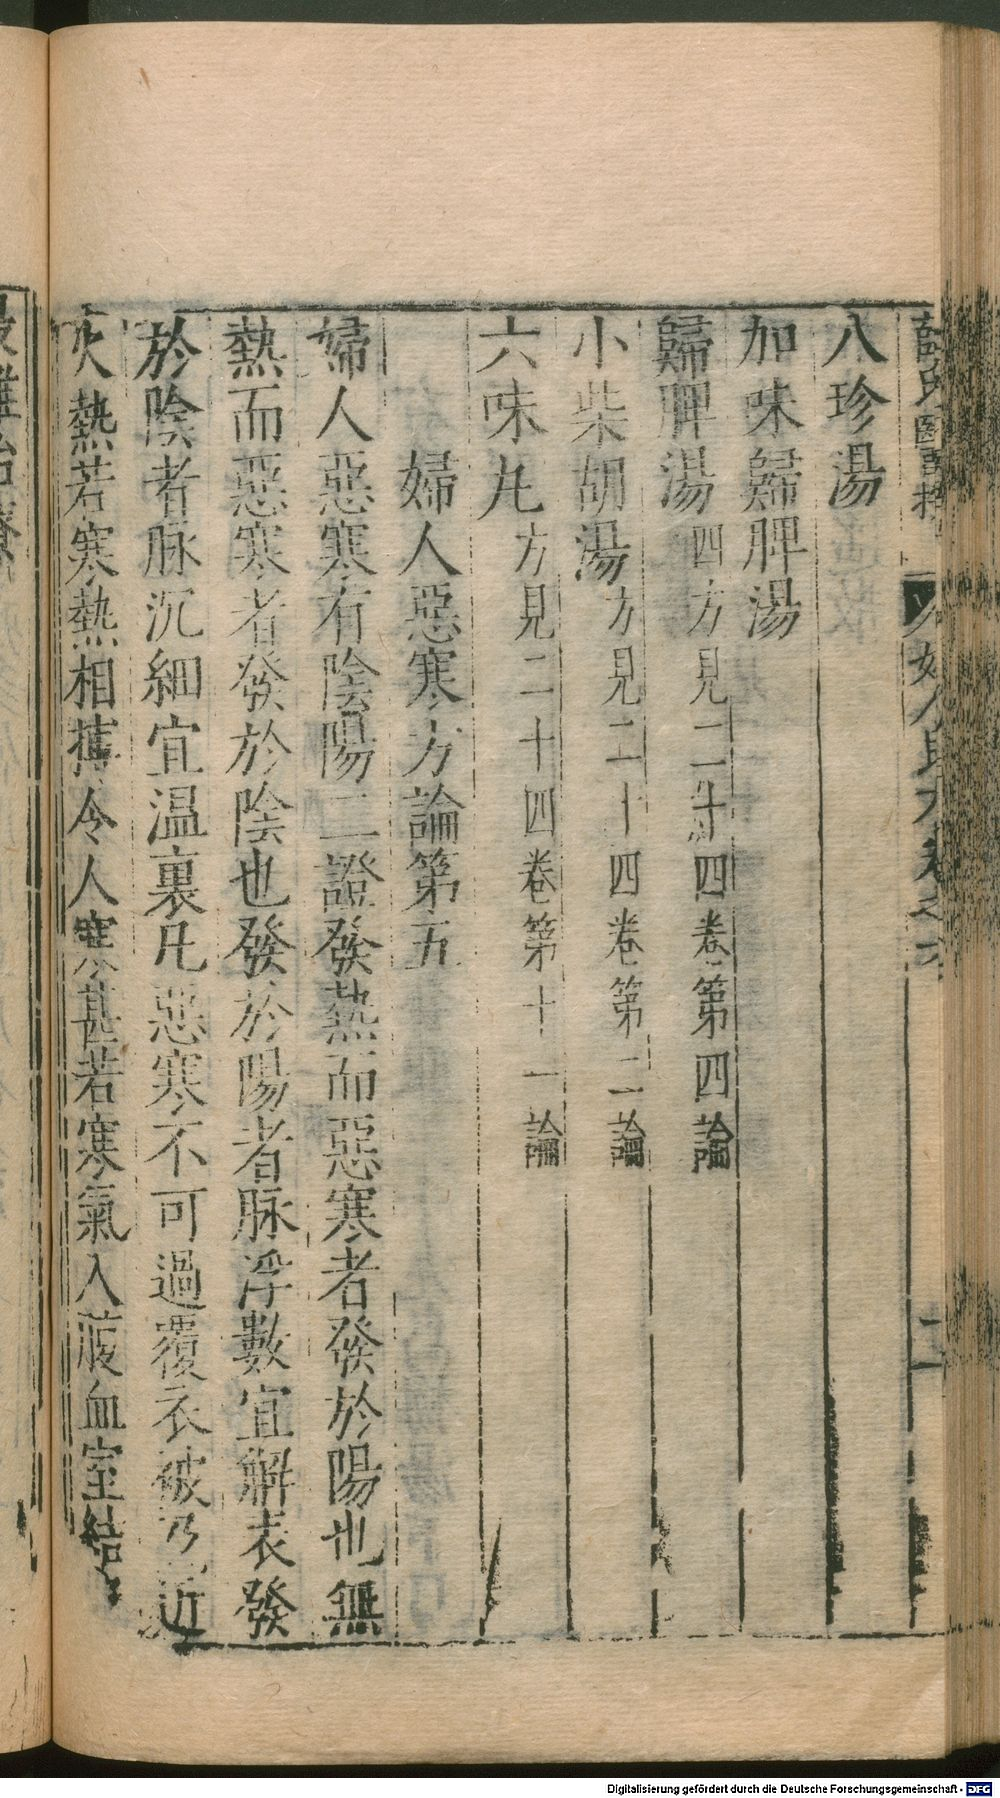 薛氏醫按 婦人良方卷之六 二
八珍湯
加味歸脾湯
歸脾湯 四方見二十四卷第四論
小柴胡湯 方見二十四卷第二論
六味丸 方見二十四卷第十一論
婦人惡寒方論第五
婦人惡寒有陰陽二證發熱而惡寒者發於陽也無
熱而惡寒者發於陰也發於陽者脉浮數宜解表發
於陰者脉沉細宜温裏凡惡寒不可過覆衣被乃近
火熱若寒熱相摶令人寒甚若寒氣入於血室結
Digitalisierung gefördert durch die Deutsche Forschungsgemeinschaft - DFG